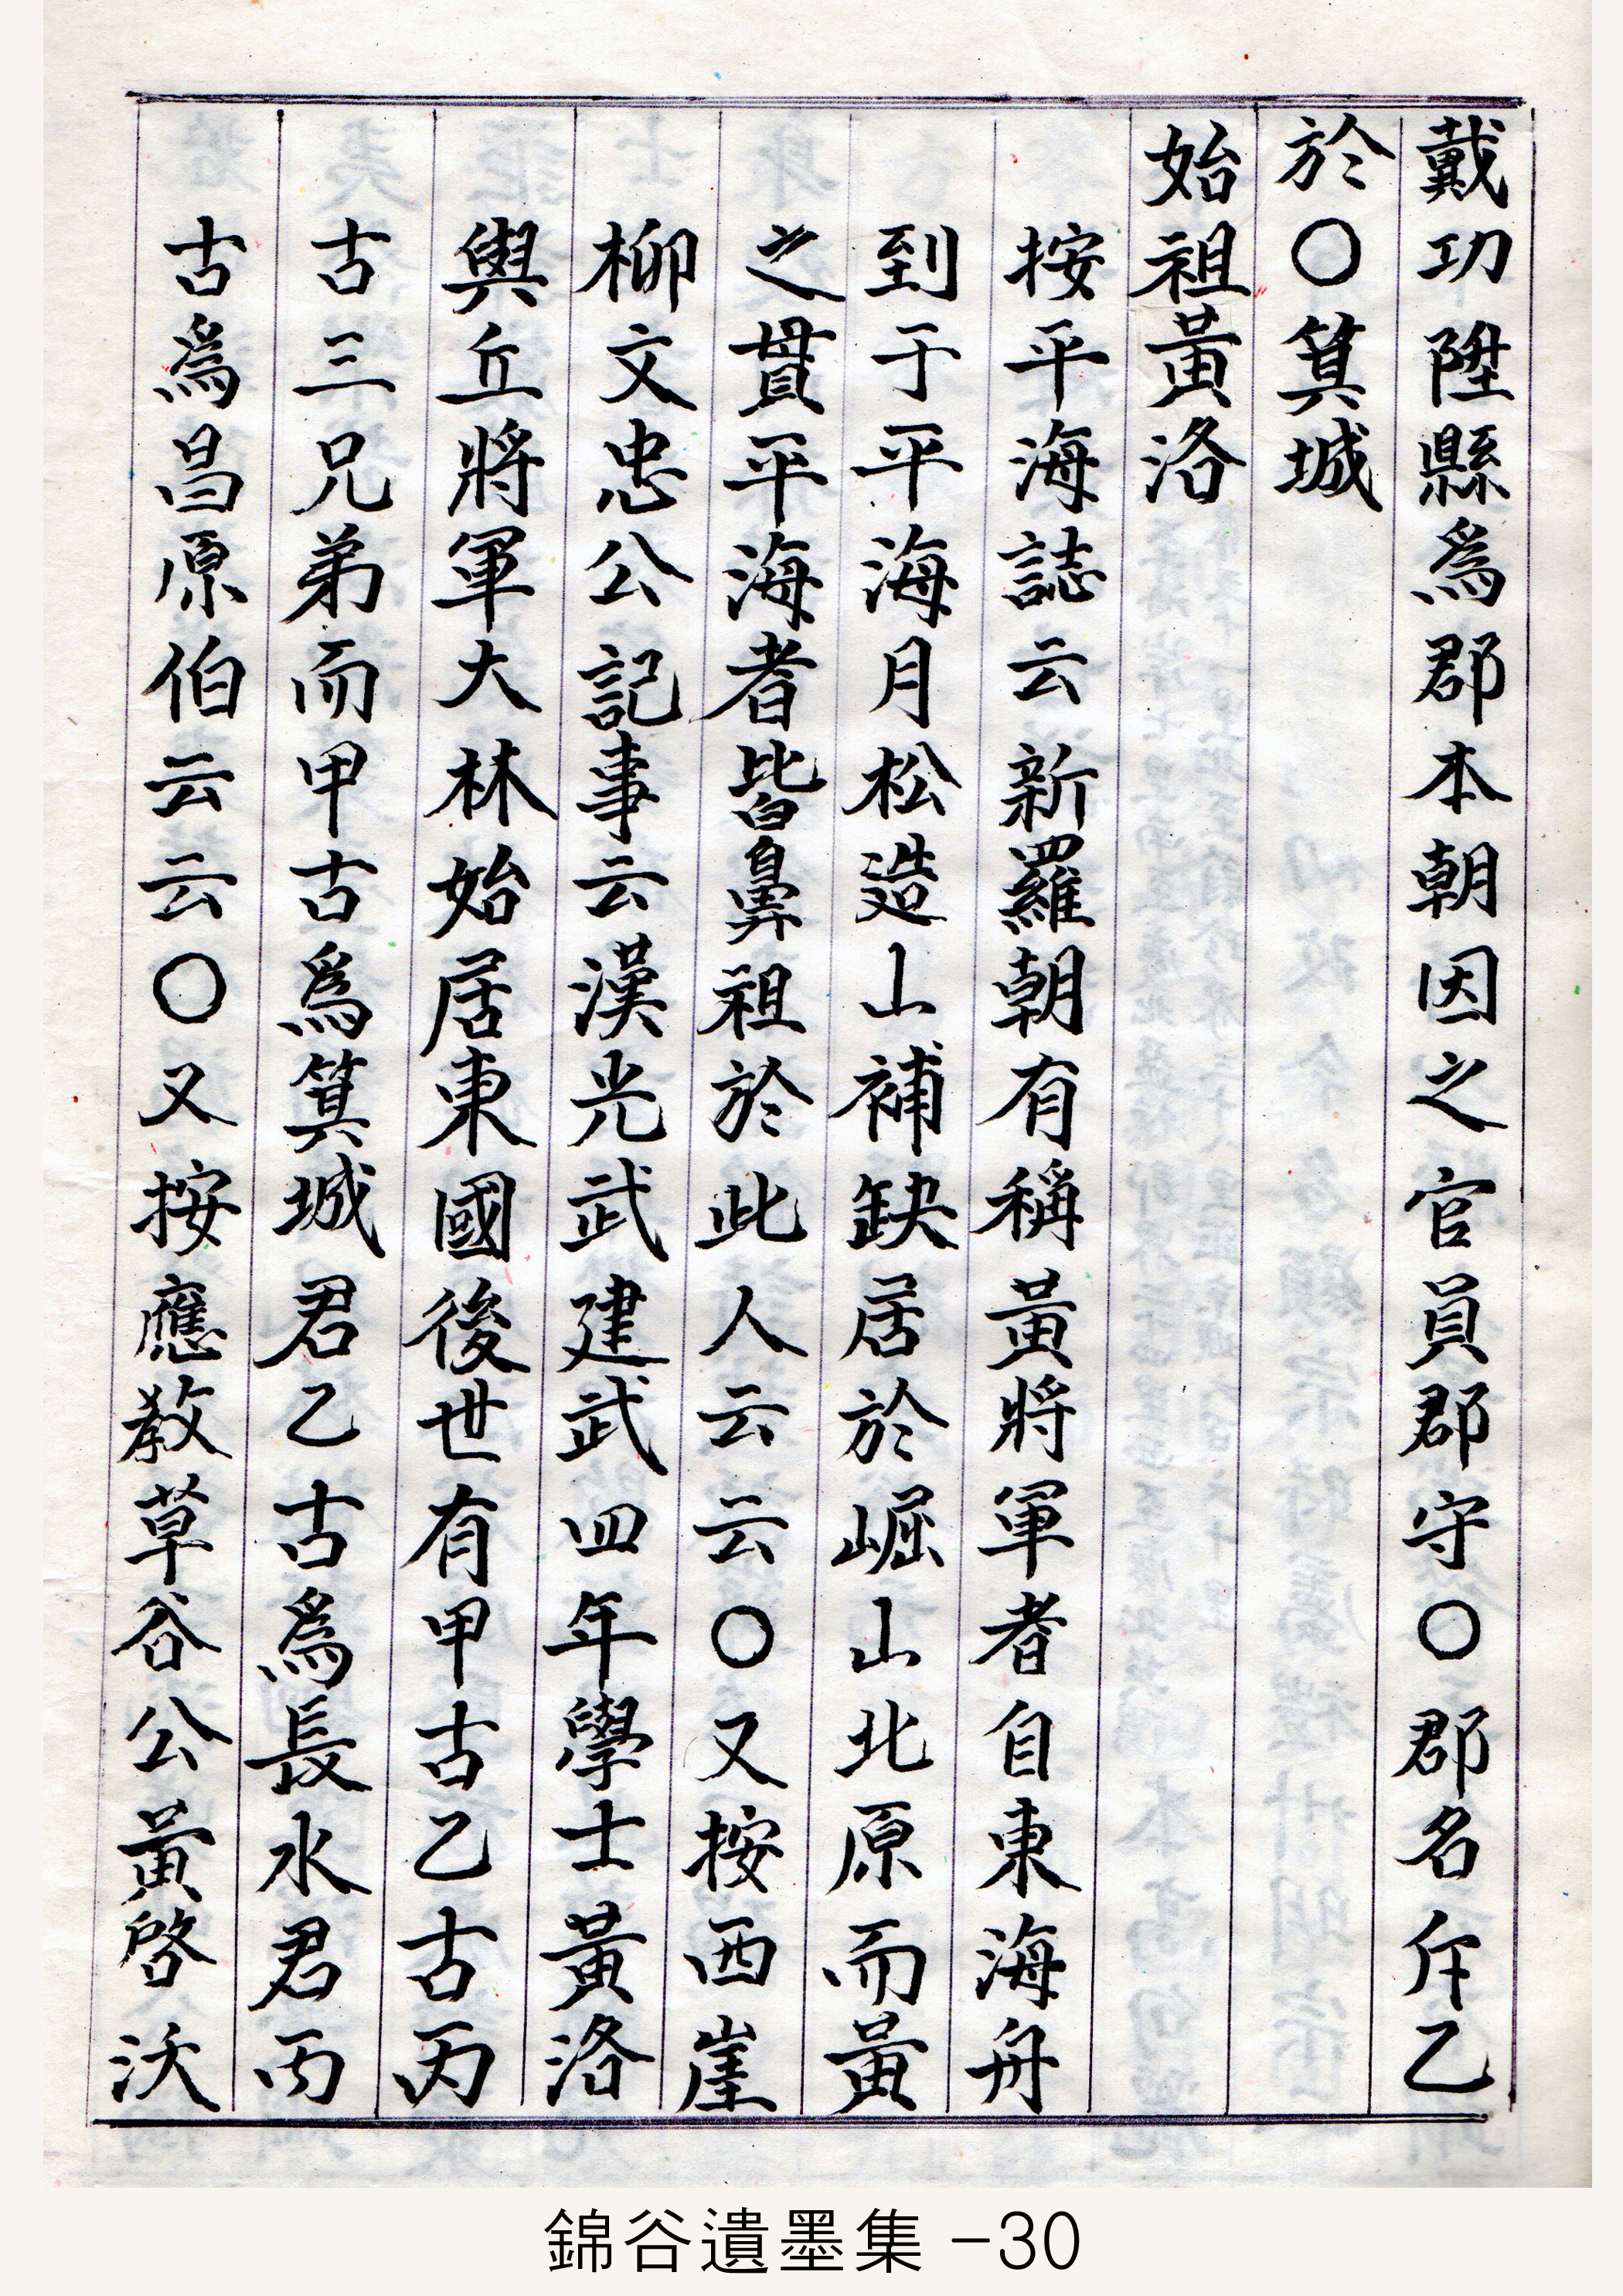 戴功陞縣爲郡本朝因之官員郡守〇郡名斤乙
於〇箕城
始祖黃洛
按平海誌云新羅朝有稱黃將軍者自東海舟
到于平海月松造山補缺居於崛山北原而黃
之貫平海者皆鼻祖於此人云云〇又按西崖
柳文忠公記事云漢光武建武四年學士黃洛
與丘將軍大林始居東國後世有甲古乙古丙
古三兄弟而甲古爲箕城君乙古爲長水君丙
古爲昌原伯云云〇又按應教草谷公黃啓沃
錦谷遺墨集 -30